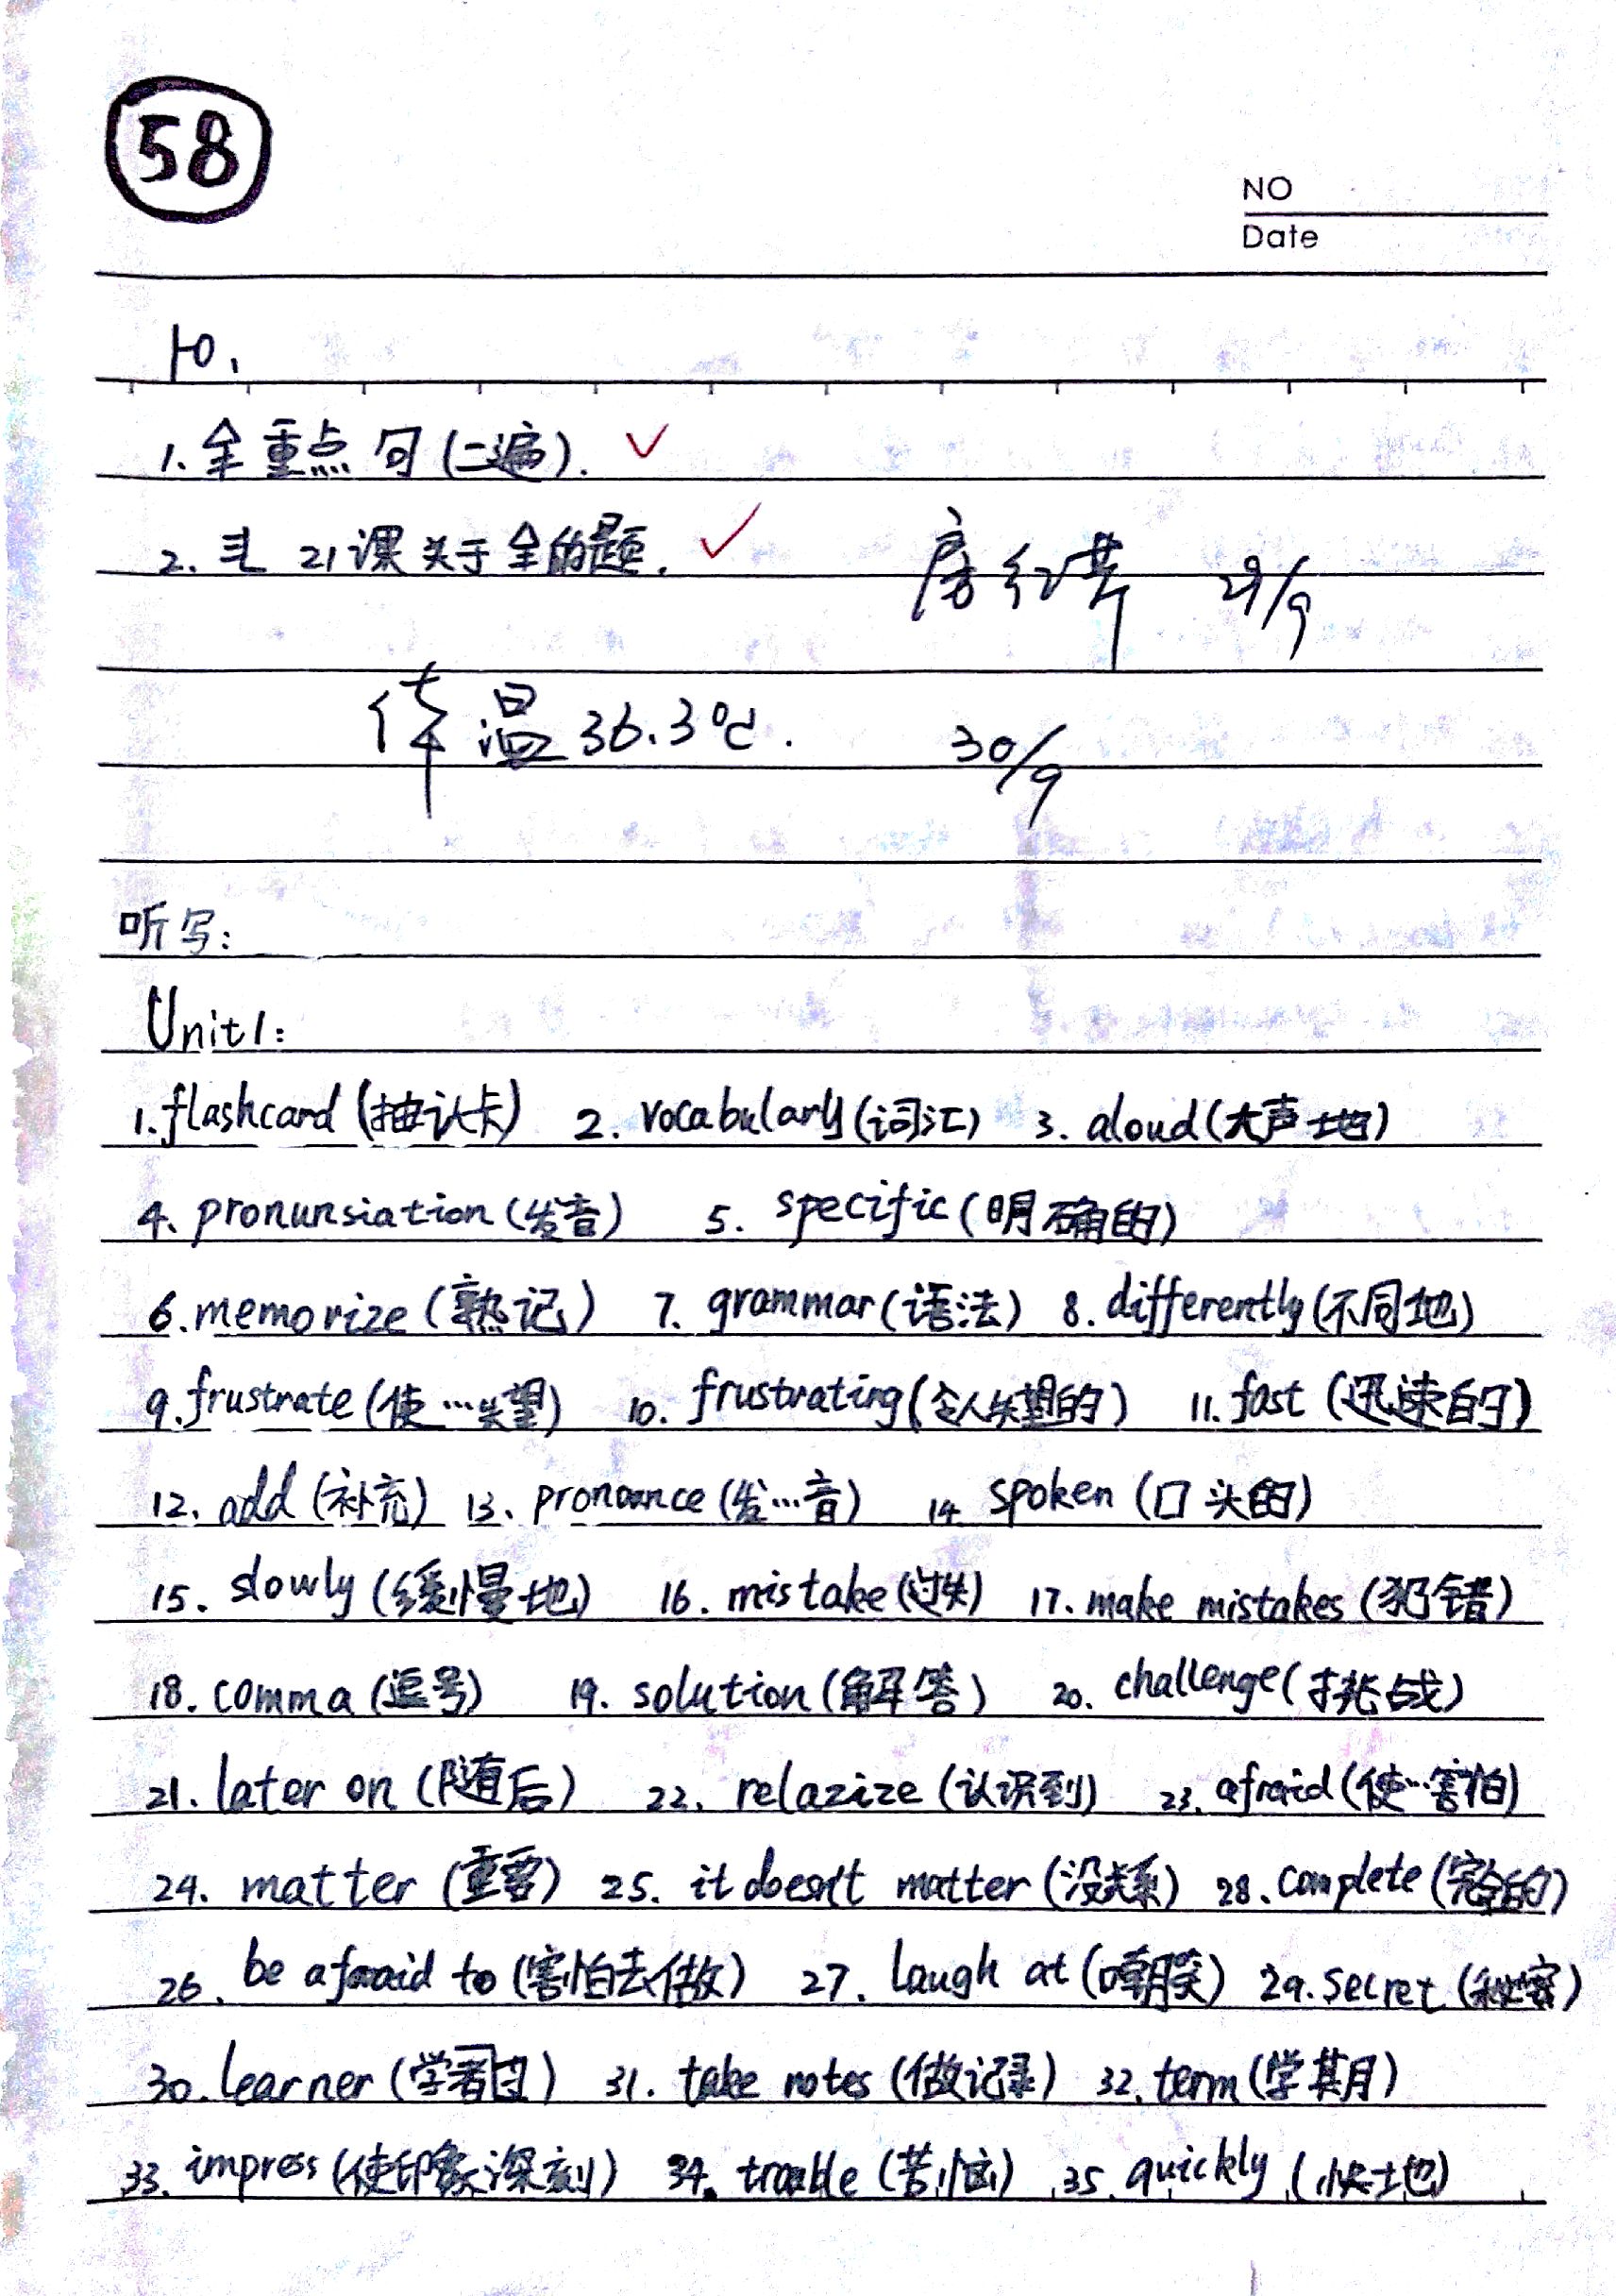 58
NO
Date
10.
1. 全重点句(二遍).
2. 21课关于全的题.
29/9
体温36.3℃.
30/9
听写:
Unit1:
1. flashcard (抽认卡) 2. vocabulary (词汇) 3. aloud (大声地)
4. pronunsiation (发音) 5. specific (明确的)
6. memorize (熟记) 7. grammar (语法) 8. differently (不同地)
9. frustrate (使…失望) 10. frustrating (令人失望的) 11. fast (迅速的)
12. add (补充) 13. pronounce (发…音) 14. spoken (口头的)
15. slowly (缓慢地) 16. mistake (过失) 17. make mistakes (犯错)
18. comma (逗号) 19. solution (解答) 20. challenge (挑战)
21. later on (随后) 22. relazize (认识到) 23. afraid (使…害怕)
24. matter (重要) 25. it doesn't matter (没关系) 28. complete (完全的)
26. be afraid to (害怕去做) 27. laugh at (嘲笑) 29. secret (秘密)
30. learner (学习者) 31. take notes (做记录) 32. term (学期)
33. impress (使印象深刻) 34. trouble (苦恼) 35. quickly (快地)